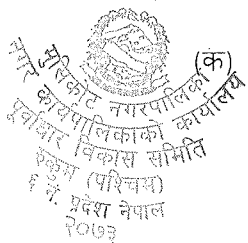 मुसिकोट नगरपालिका
(क)
नगर कार्यपालिकाको कार्यालय
पूर्वाधार विकास समिति
रुकुम (पश्चिम)
६ नं. प्रदेश नेपाल
२०७३